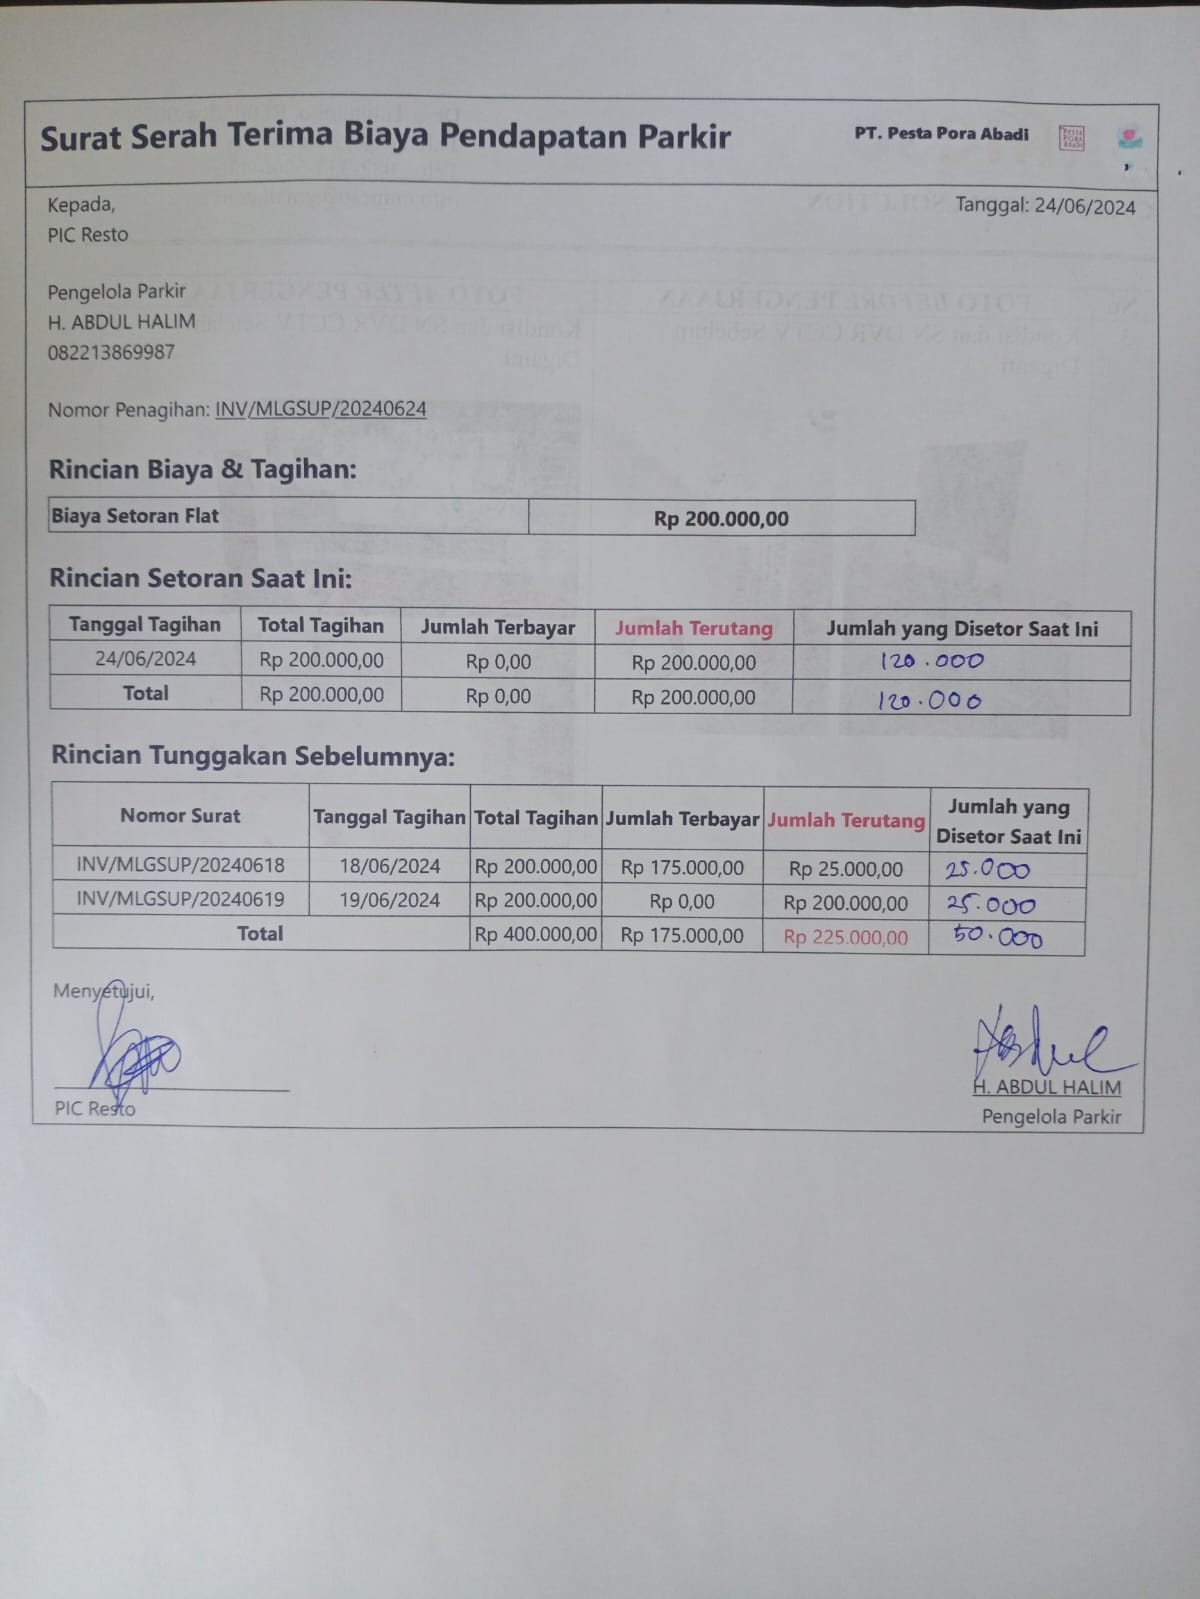 Surat Serah Terima Biaya Pendapatan Parkir
PT. Pesta Pora Abadi
PESTA PORA ABADI
Kepada,
Tanggal: 24/06/2024
PIC Resto
Pengelola Parkir
H. ABDUL HALIM
082213869987
Nomor Penagihan: INV/MLGSUP/20240624
Rincian Biaya & Tagihan:
Biaya Setoran Flat Rp 200.000,00
Rincian Setoran Saat Ini:
Tanggal Tagihan Total Tagihan Jumlah Terbayar Jumlah Terutang Jumlah yang Disetor Saat Ini
24/06/2024 Rp 200.000,00 Rp 0,00 Rp 200.000,00 120.000
Total Rp 200.000,00 Rp 0,00 Rp 200.000,00 120.000
Rincian Tunggakan Sebelumnya:
Nomor Surat Tanggal Tagihan Total Tagihan Jumlah Terbayar Jumlah Terutang Jumlah yang Disetor Saat Ini
INV/MLGSUP/20240618 18/06/2024 Rp 200.000,00 Rp 175.000,00 Rp 25.000,00 25.000
INV/MLGSUP/20240619 19/06/2024 Rp 200.000,00 Rp 0,00 Rp 200.000,00 25.000
Total Rp 400.000,00 Rp 175.000,00 Rp 225.000,00 50.000
Menyetujui,
PIC Resto
H. ABDUL HALIM
Pengelola Parkir